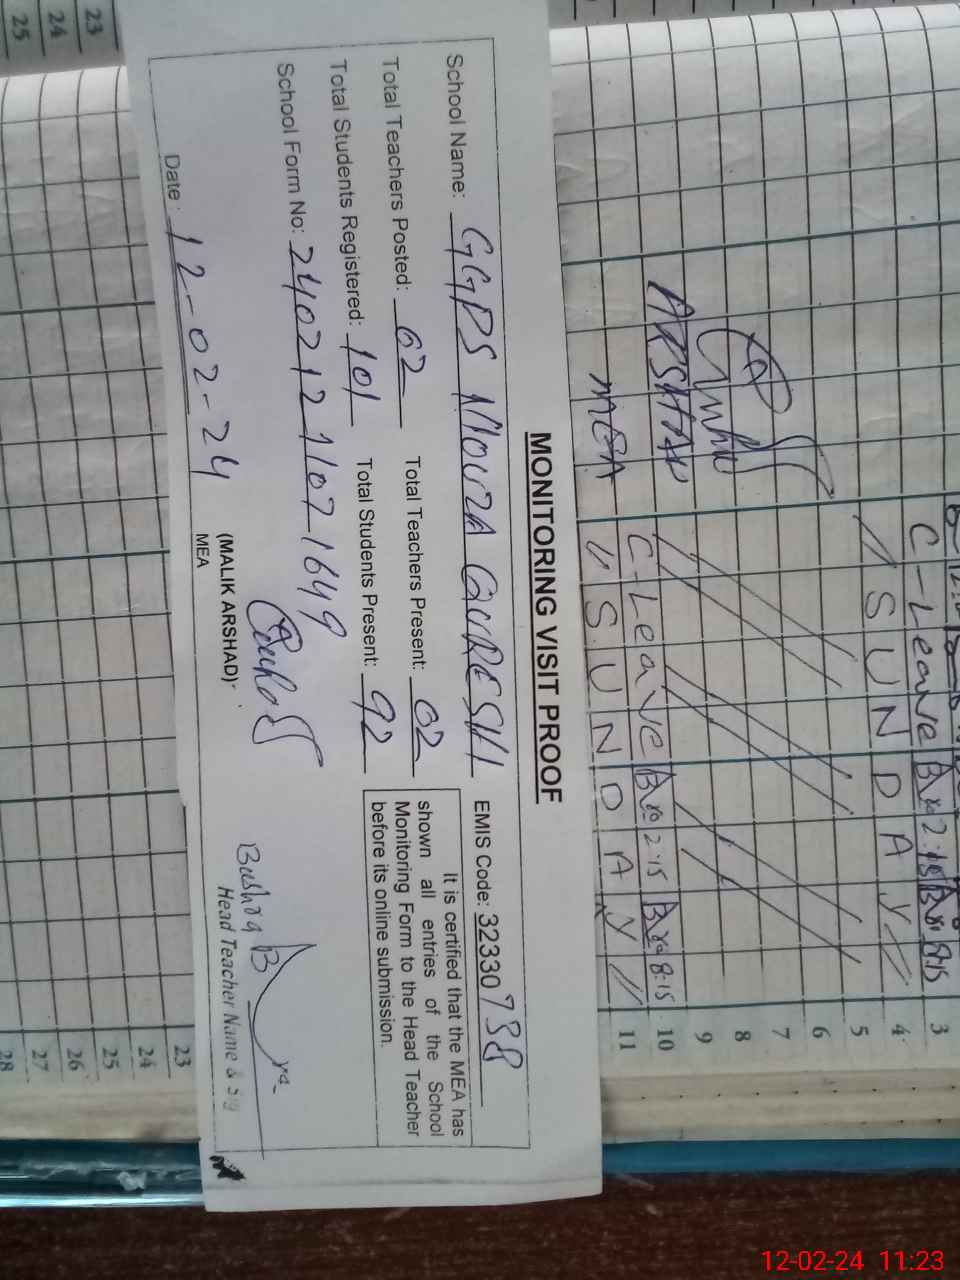 MONITORING VISIT PROOF
School Name: GGPS MOUZA QURESHI EMIS Code: 32330788
Total Teachers Posted: 02 Total Teachers Present: 02
Total Students Registered: 101 Total Students Present: 92
School Form No: 24021211071649
It is certified that the MEA has
shown all entries of the School
Monitoring Form to the Head Teacher
before its online submission.
Date: 12-02-24
(MALIK ARSHAD)
MEA
Bushra B
Head Teacher Name & Sig
3
C-Leave 2:15 8:15
4
S U N D A Y
5
6
7
8
9
ARSHAD
10
C-Leave 2:15 8:15
MEA
11
S U N D A Y
23
24
25
23
24
25
26
27
28
12-02-24 11:23